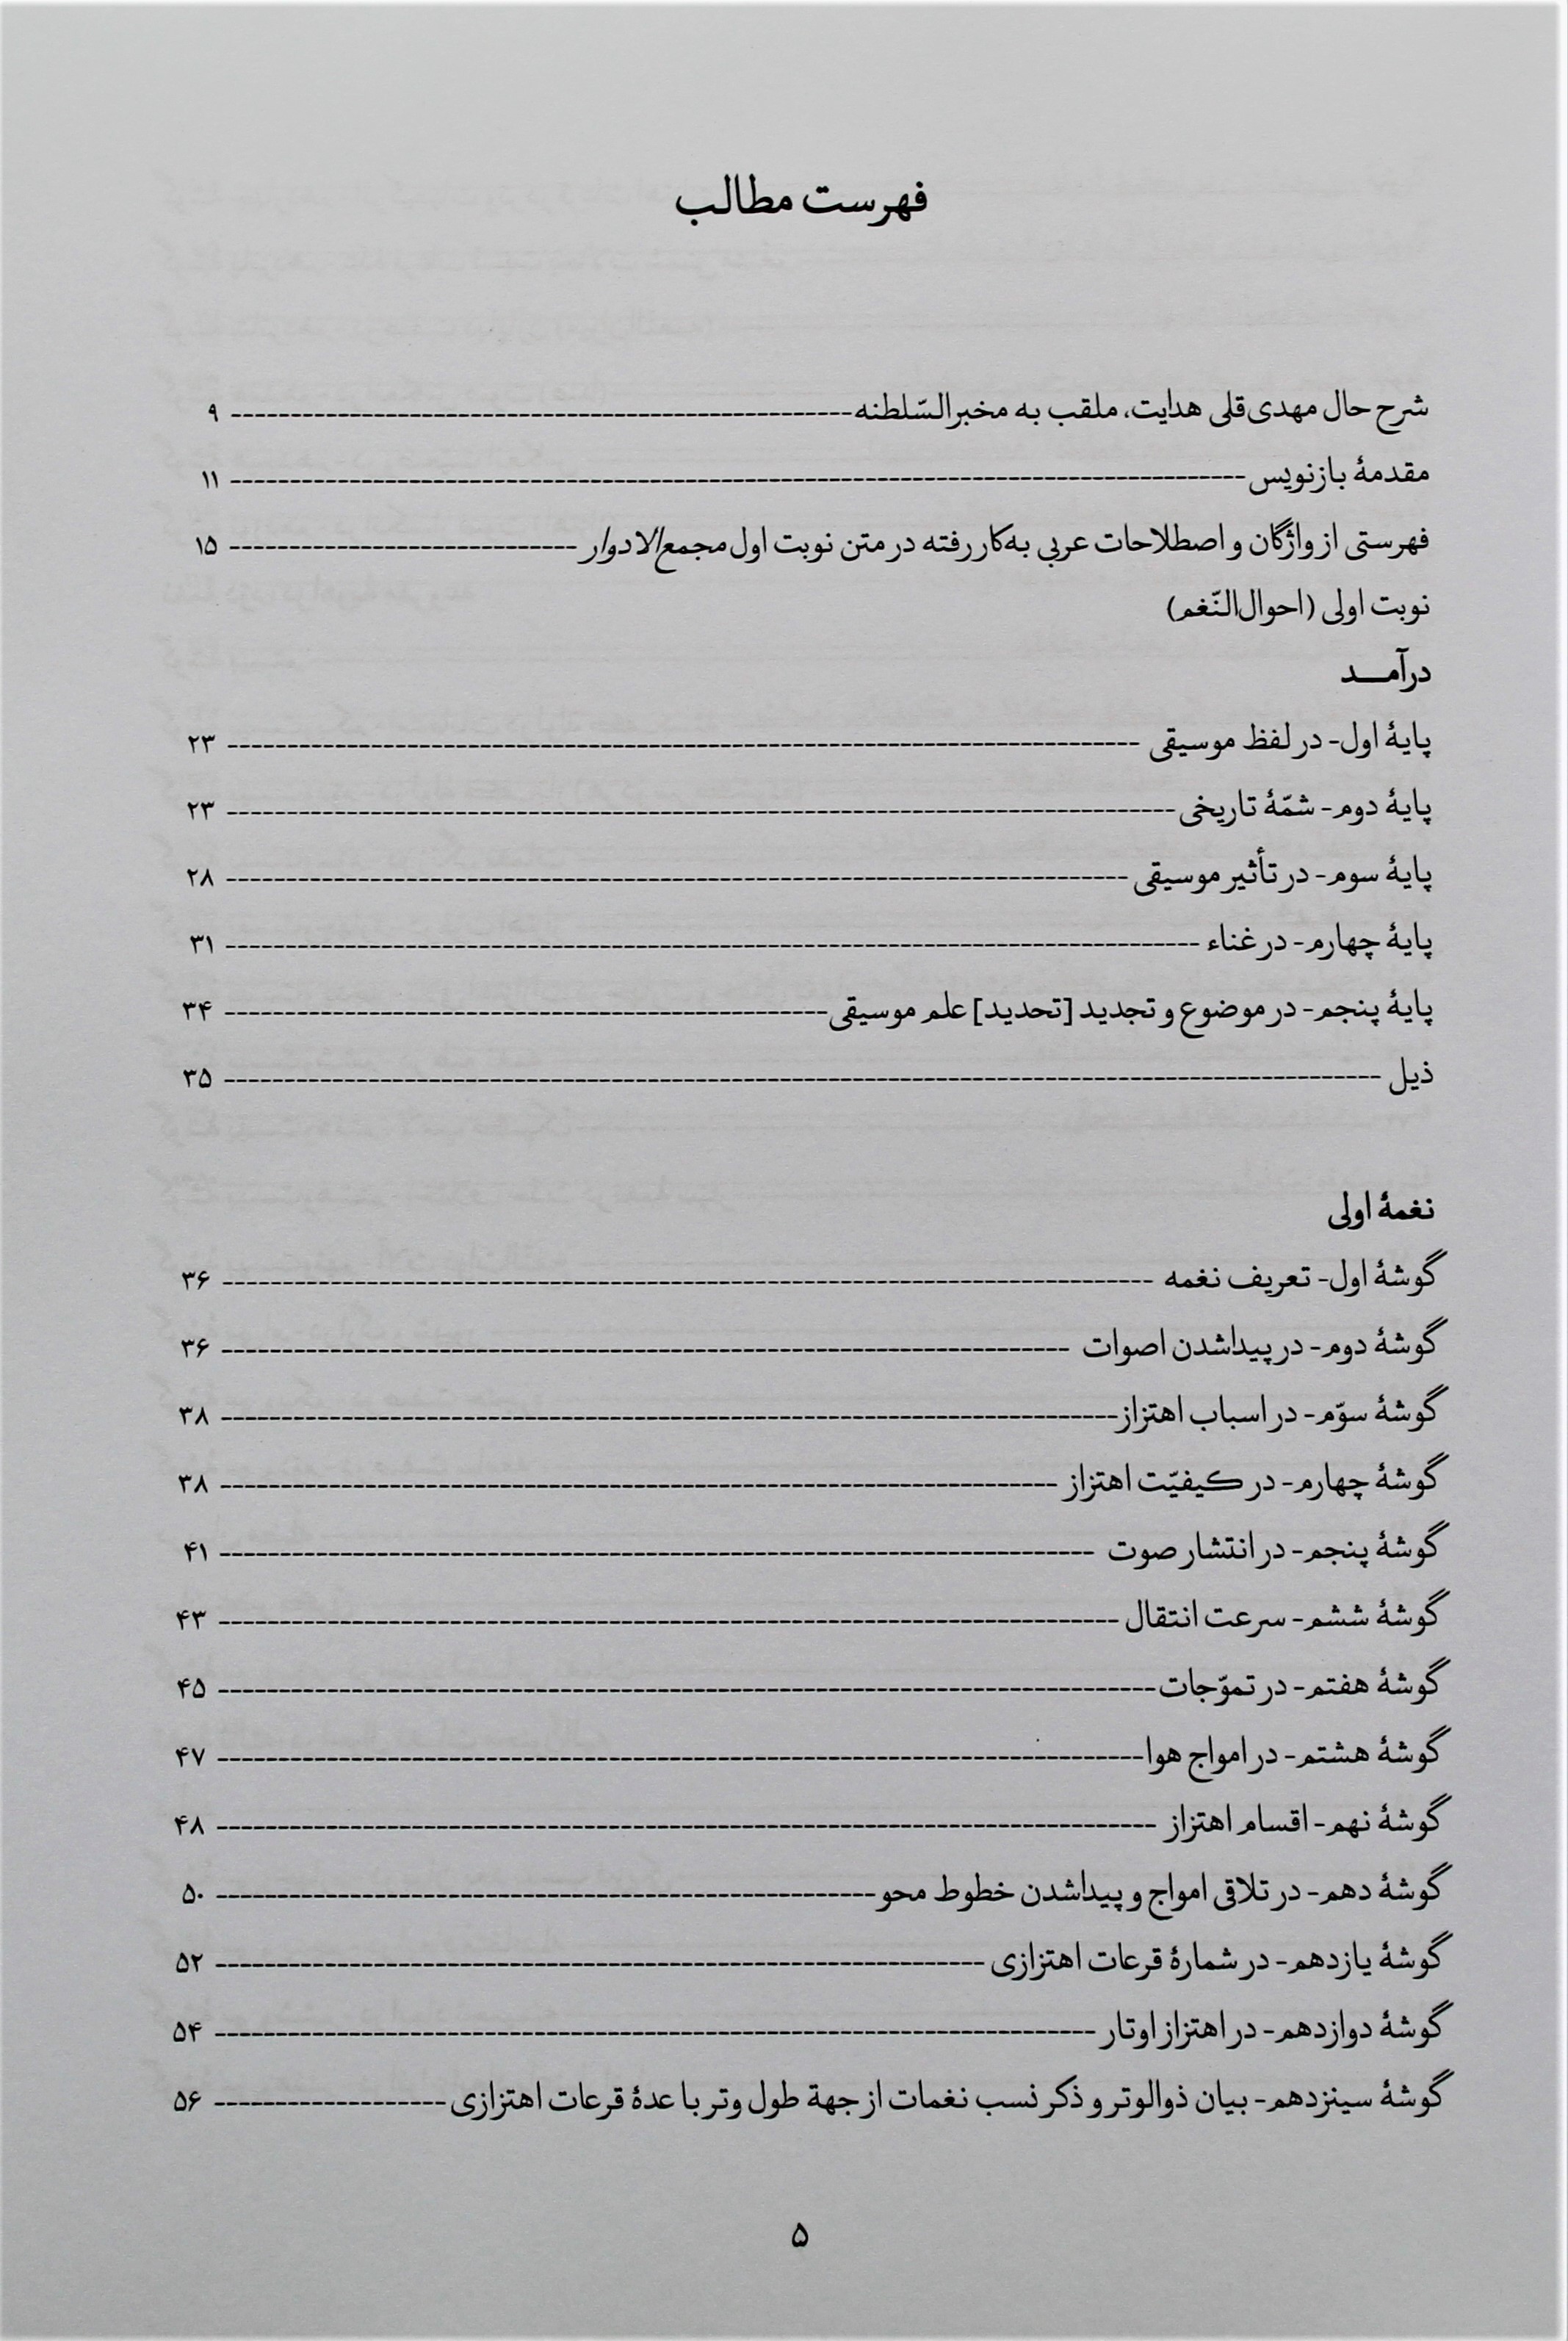 فهرست مطالب
شرح حال مهدی‌قلی هدایت، ملقب به مخبرالسّلطنه ---------- ۹
مقدمهٔ بازنویس ---------- ۱۱
فهرستی از واژگان و اصطلاحات عربی به‌کاررفته در متن نوبت اول مجمع‌الادوار ---------- ۱۵
نوبت اولی (احوال‌النّغم)
درآمـــد
پایهٔ اول- در لفظ موسیقی ---------- ۲۳
پایهٔ دوم- شمّهٔ تاریخی ---------- ۲۳
پایهٔ سوم- در تأثیر موسیقی ---------- ۲۸
پایهٔ چهارم- در غناء ---------- ۳۱
پایهٔ پنجم- در موضوع و تجدید [تحدید] علم موسیقی ---------- ۳۴
ذیل ---------- ۳۵
نغمهٔ اولی
گوشهٔ اول- تعریف نغمه ---------- ۳۶
گوشهٔ دوم- در پیداشدن اصوات ---------- ۳۶
گوشهٔ سوّم- در اسباب اهتزاز ---------- ۳۸
گوشهٔ چهارم- در کیفیّت اهتزاز ---------- ۳۸
گوشهٔ پنجم- در انتشار صوت ---------- ۴۱
گوشهٔ ششم- سرعت انتقال ---------- ۴۳
گوشهٔ هفتم- در تموّجات ---------- ۴۵
گوشهٔ هشتم- در امواج هوا ---------- ۴۷
گوشهٔ نهم- اقسام اهتزاز ---------- ۴۸
گوشهٔ دهم- در تلاقی امواج و پیداشدن خطوط محو ---------- ۵۰
گوشهٔ یازدهم- در شمارهٔ قرعات اهتزازی ---------- ۵۲
گوشهٔ دوازدهم- در اهتزاز اوتار ---------- ۵۴
گوشهٔ سینزدهم- بیان ذوالوتر و ذکر نسب نغمات از جهة طول وتر با عدهٔ قرعات اهتزازی ---------- ۵۶
۵